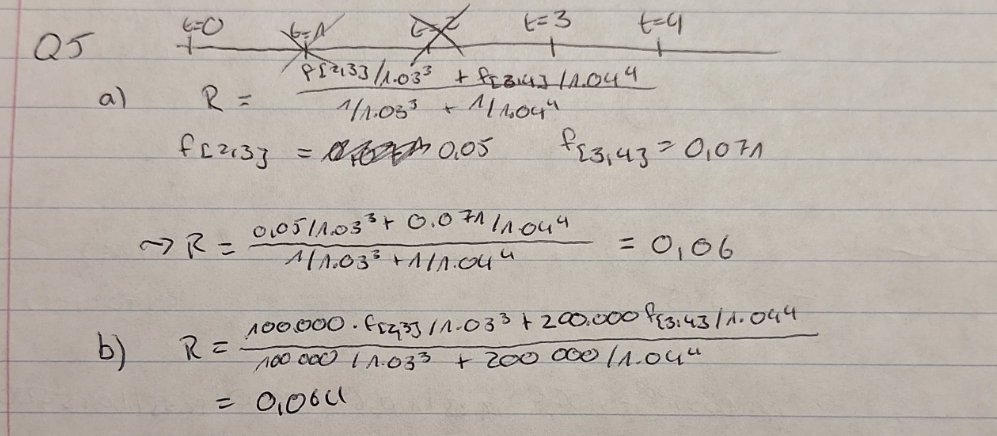 Q5 t=0 t=1 t=2 t=3 t=4
a) R = f[2,3]/1.03³ + f[3,4]/1.04⁴
1/1.03³ + 1/1.04⁴
f[2,3] = 0,05 f[3,4] = 0,071
→ R = 0,05/1.03³ + 0.071/1.04⁴ = 0,06
1/1.03³ + 1/1.04⁴
b) R = 100.000 · f[2,3]/1.03³ + 200.000 f[3,4]/1.04⁴
100 000/1.03³ + 200 000/1.04⁴
= 0,064